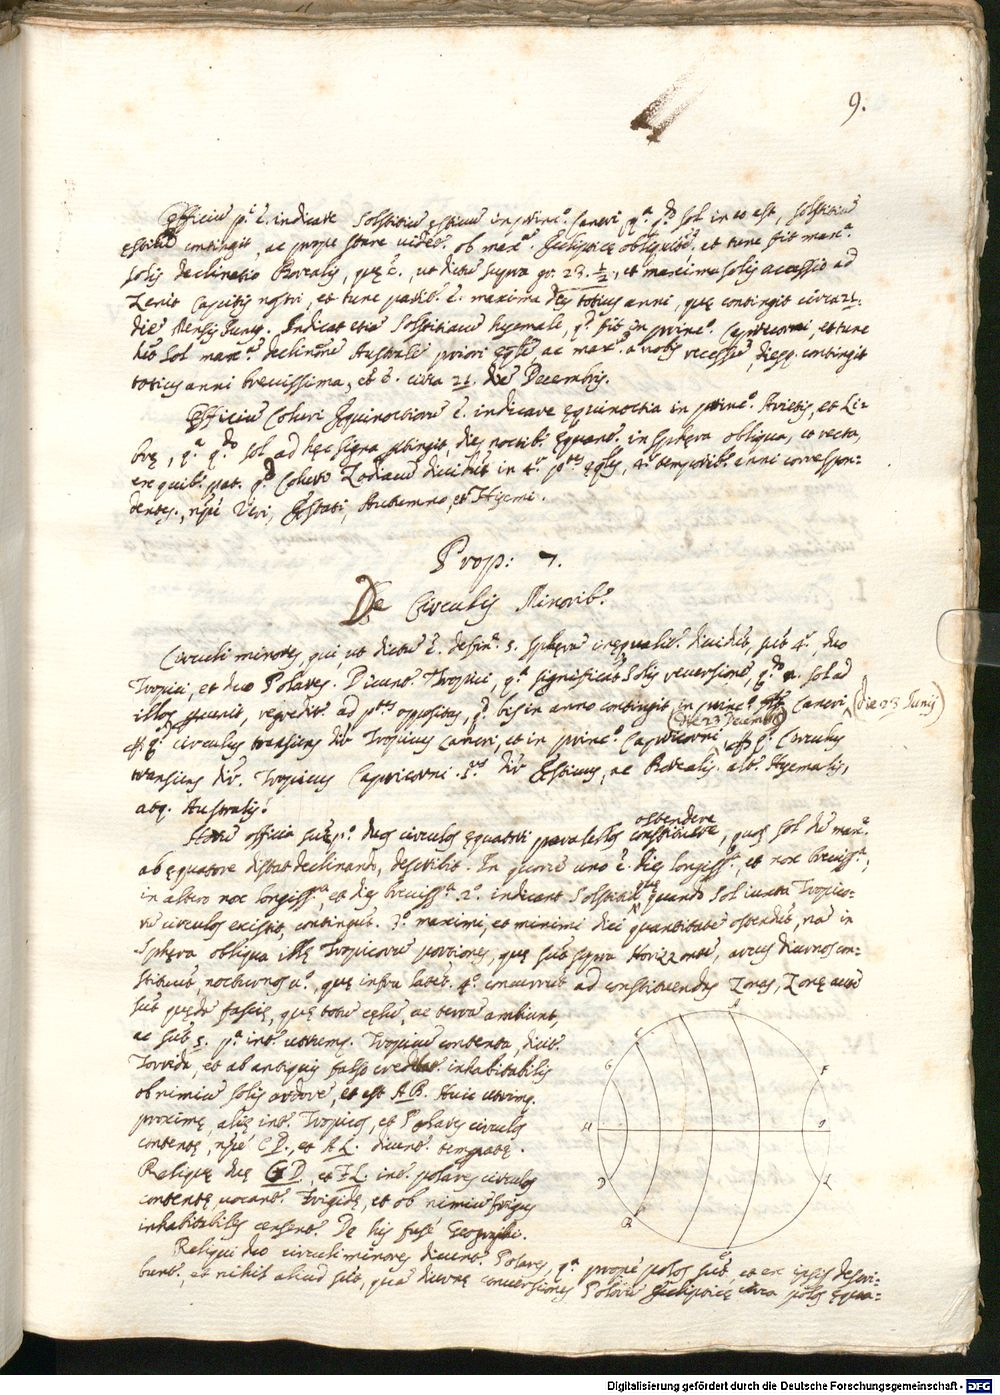 9.
Officiũ p.ⁱ ẽ. indicare Solstitiũ ęstiuũ in princ.º Cancri q.ᵃ q.ᵈᵒ Sol in eo est, solstitiũ
ęstiuũ contingit, ac prope stare uidet.ʳ ob max.ᵃᵐ Eclipticę obliquitẽ. et tunc fit max.ᵃ
Solis declinatio Borealis, quę ẽ, ut dictũ supra gr. 23. ½, et maxima solis accessio ad
Zenit Capitis nostri, et tunc ẽ. maxima dies totius anni, quę contingit circa 21.
die Mensis Junij. Indicat etiã Solstitium hyemale, q.ᵈ fit in princ.º Capricorni, et tunc
Sol max.ᵃᵐ declinõnẽ Australẽ priori ęqlẽ, ac max.ᵉ a nobis recessũ, diesq. contingit
totius anni breuissima, et ẽ. circa 21. diẽ Decembris.
Officiũ Coluri Ęquinoctiorũ ẽ. indicare ęquinoctia in princ.º Arietis, et Li-
brę, q.ᵃ q.ᵈᵒ Sol ad hęc signa ptingit, dies noctib.ˢ ęquant.ʳ in Sphęra obliqua, et recta,
ex quib.ˢ pat. q.ᵈ Coluri Zodiacũ diuidũt in 4.ʳ p.ᵗᵉˢ ęqles, 4.ʳ temporib.ˢ anni correspon-
dentes, npẽ Veri, Ęstati, Autumno, et Hyemi.
Prop: 7.
De Circulis Minorib.ˢ
Circuli minores, qui, ut dictũ ẽ. defin.ᵉ 5. Sphęrã inęqualit.ʳ diuidũt, sũt 4.ʳ, duo
Tropici, et duo Polares. Dicunt.ʳ Tropici, q.ᵃ significãt Solis reuersionẽ, q.ᵈᵒ n. Sol ad
illos puenit, regredit.ʳ ad p.ᵗᵉˢ oppositas, q.ᵈ bis in anno contingit in princ.º Cancri, (die 23 Junij)
q.ⁱ circulus transiens dr̃ Tropicus Cancri, et in princ.º Capricorni (die 23 Decembris) q.ⁱ Circulus
transiens dr̃. Tropicus Capricorni. P.ᵘˢ dr̃ Ęstiuus, ac Borealis. alt.ʳ Hyemalis,
atq. Australis.
Horũ officia sũt p.º duos circulos ęquatori parallelos constituere ostendere, quos Sol dũ max.ᵉ
ab ęquatore distat declinando, describit. In quorũ uno ẽ. dies longiss.ᵃ, et nox breuiss.ᵃ,
in altero nox longiss.ᵃ, et dies breuiss.ᵃ 2.º indicant Solstitia quę quando Sol iuxta Tropico-
rũ circulos existit, contingũt. 3.º maximi, et minimi diei quantitatẽ ostendũt, nã in
Sphęra obliqua illę Tropicorũ portiones, quę sũt supra Horizzontẽ, arcus diurnos con-
stituũt, nocturnos u.º, quę infra latẽt. 4.º concurrũt ad constituendas Zonas, Zonę autẽ
sũt quędã fascię, quę totũ cęlũ, ac terrã ambiunt,
ac sũt 5. p.ᵃ int. utrumq. Tropicũ contenta, dicit.ʳ
Torrida, et ab antiquis falso credita inhabitabilis
ob nimiũ solis ardorẽ, et est A B. Huic utrimq.
proximę alię int. Tropicos, et Polares circulos
contentę, npẽ C D., et A L. dicunt.ʳ tempratę.
Reliquę duę G D, et F L. int. polares circulos
contentę uocant.ʳ Frigidę, et ob nimiũ frigus
inhabitabiles censent.ʳ De his fusè Geographi.
Reliqui duo circuli minores dicunt.ʳ Polares, q.ᵃ propè polos sũt, et ex ipsis descri-
bunt.ʳ, et nihil aliud sũt, quã diurnę conuersiones Polorũ Eclipticę circa polos ęqua-
A
C
G
F
H
I
D
L
B
E
Digitalisierung gefördert durch die Deutsche Forschungsgemeinschaft - DFG